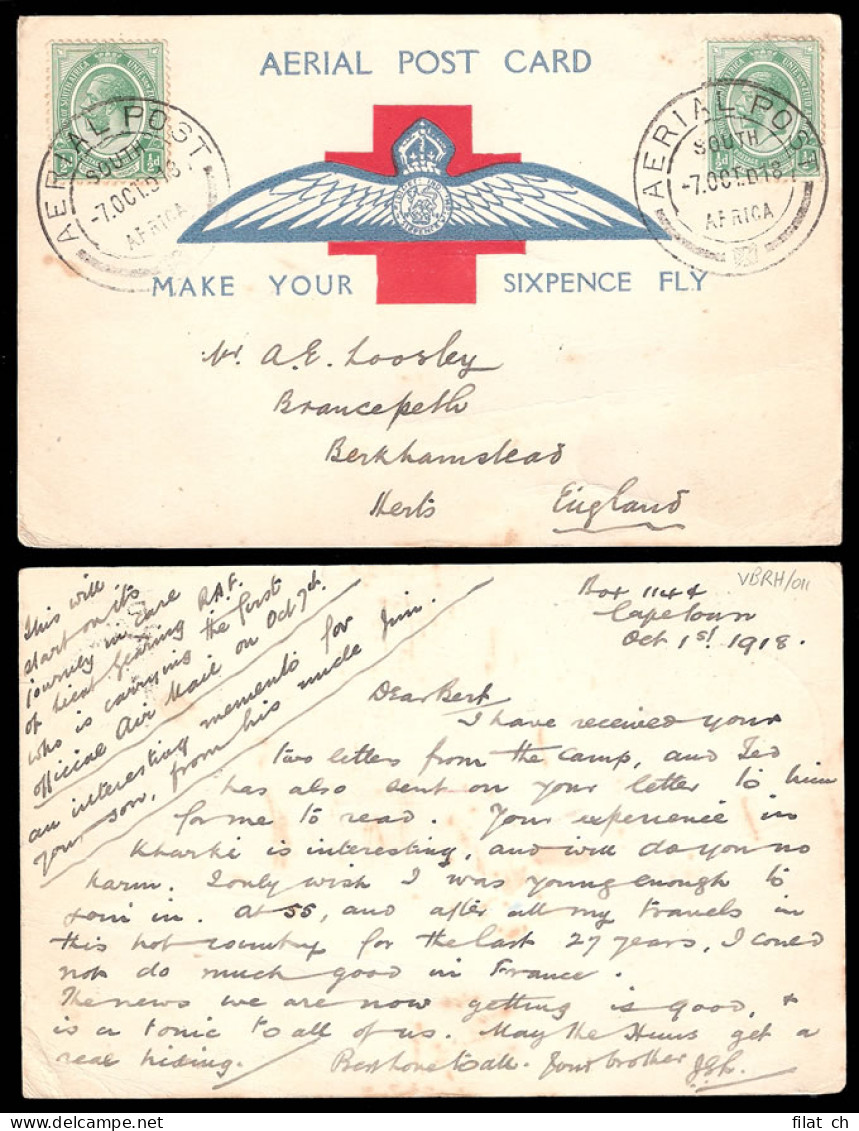 AERIAL POST CARD
AERIAL POST
SOUTH
-7.OCT.D18
AFRICA
AERIAL POST
SOUTH
-7.OCT.D18
AFRICA
MAKE YOUR SIXPENCE FLY
Mr. A.E. Loosley
Brancepeth
Berkhamstead
Herts England
VBRH/011
Box 1144
Capetown
Oct 1st 1918.
This will
start on its
journey in care
of Lieut Gearing R.A.F.
who is carrying the first
official Air Mail on Oct 7th.
an interesting memento for Jim.
your son, from his uncle
Dear Bert
I have received your
two letters from the camp, and Ted
has also sent on your letter to him
for me to read. Your experience in
Kharki is interesting, and will do you no
harm. I only wish I was young enough to
join in. At 55, and after all my travels in
this hot country for the last 27 years, I could
not do much good in France.
The news we are now getting is good, &
is a tonic to all of us. May the Huns get a
real hiding. Best love to all. Your brother
filat ch